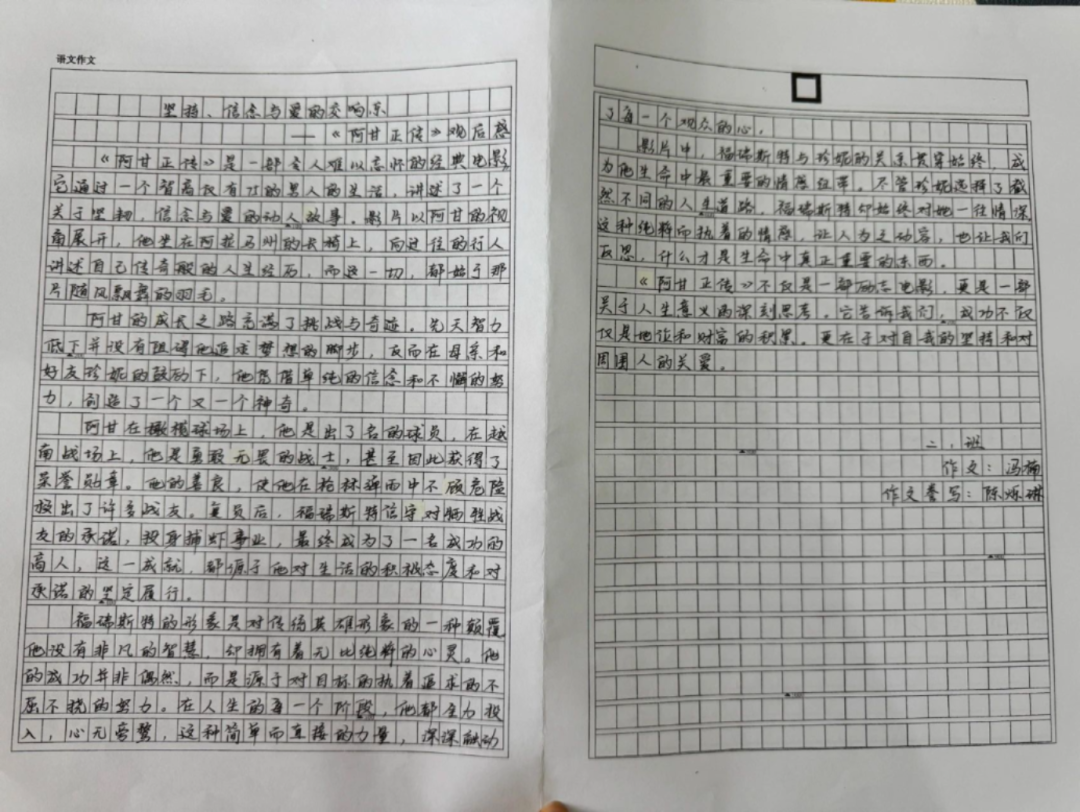 语文作文
坚持、信念与爱的交响乐
——《阿甘正传》观后感
《阿甘正传》是一部令人难以忘怀的经典电影,
它通过一个智商仅有75的男人的生活,讲述了一个
关于坚韧,信念与爱的动人故事。影片以阿甘的视
角展开,他坐在阿拉马州的长椅上,向过往的行人
讲述自己传奇般的人生经历,而这一切,都始于那
片随风飘舞的羽毛。
阿甘的成长之路充满了挑战与奇迹。先天智力
低下并没有阻碍他追求梦想的脚步,反而在母亲和
好友珍妮的鼓励下,他凭借单纯的信念和不懈的努
力,创造了一个又一个神奇。
阿甘在橄榄球场上,他是出了名的球员,在越
南战场上,他是勇敢无畏的战士,甚至因此获得了
荣誉勋章。他的善良,使他在枪林弹雨中不顾危险
救出了许多战友。复员后,福瑞斯特信守对牺牲战
友的承诺,投身捕虾事业,最终成为了一名成功的
商人,这一成就,都源于他对生活的积极态度和对
承诺的坚定履行。
福瑞斯特的形象是对传统英雄形象的一种颠覆
他没有非凡的智慧,却拥有着无比纯粹的心灵。他
的成功并非偶然,而是源于对目标的执着追求的不
屈不挠的努力。在人生的每一个阶段,他都全力投
入,心无旁骛,这种简单而直接的力量,深深触动
了每一个观众的心。
影片中,福瑞斯特与珍妮的关系贯穿始终,成
为他生命中最重要的情感纽带。不管珍妮选择了截
然不同的人生道路,福瑞斯特却始终对她一往情深
这种纯粹而执着的情感,让人为之动容,也让我们
反思,什么才是生命中真正重要的东西。
《阿甘正传》不仅是一部励志电影,更是一部
关于人生意义的深刻思考。它告诉我们,成功不仅
仅是地位和财富的积累。更在于对自我的坚持和对
周围人的关爱。
二,班
作文:冯楠
作文誊写:陈烁琳